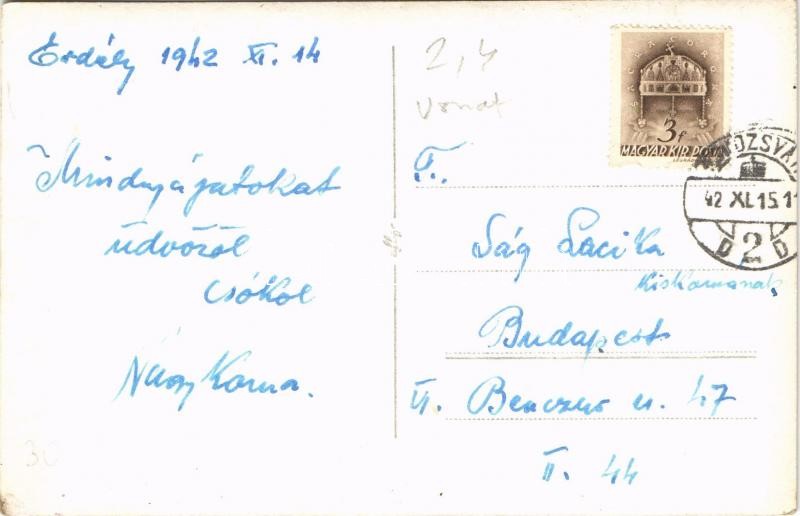 Erdély 1942 XI. 14
Mindnyájatokat
üdvözöl
csókol
Nagykoma.
2,4
vonat
F.
Ság Lacika
Kiskomának
Budapest
VI. Benczur u. 47
II. 44
SZENT KORONA
3f
MAGYAR KIR. POSTA
KOLOZSVÁR
42 XI. 15. 11
D 2 D
30